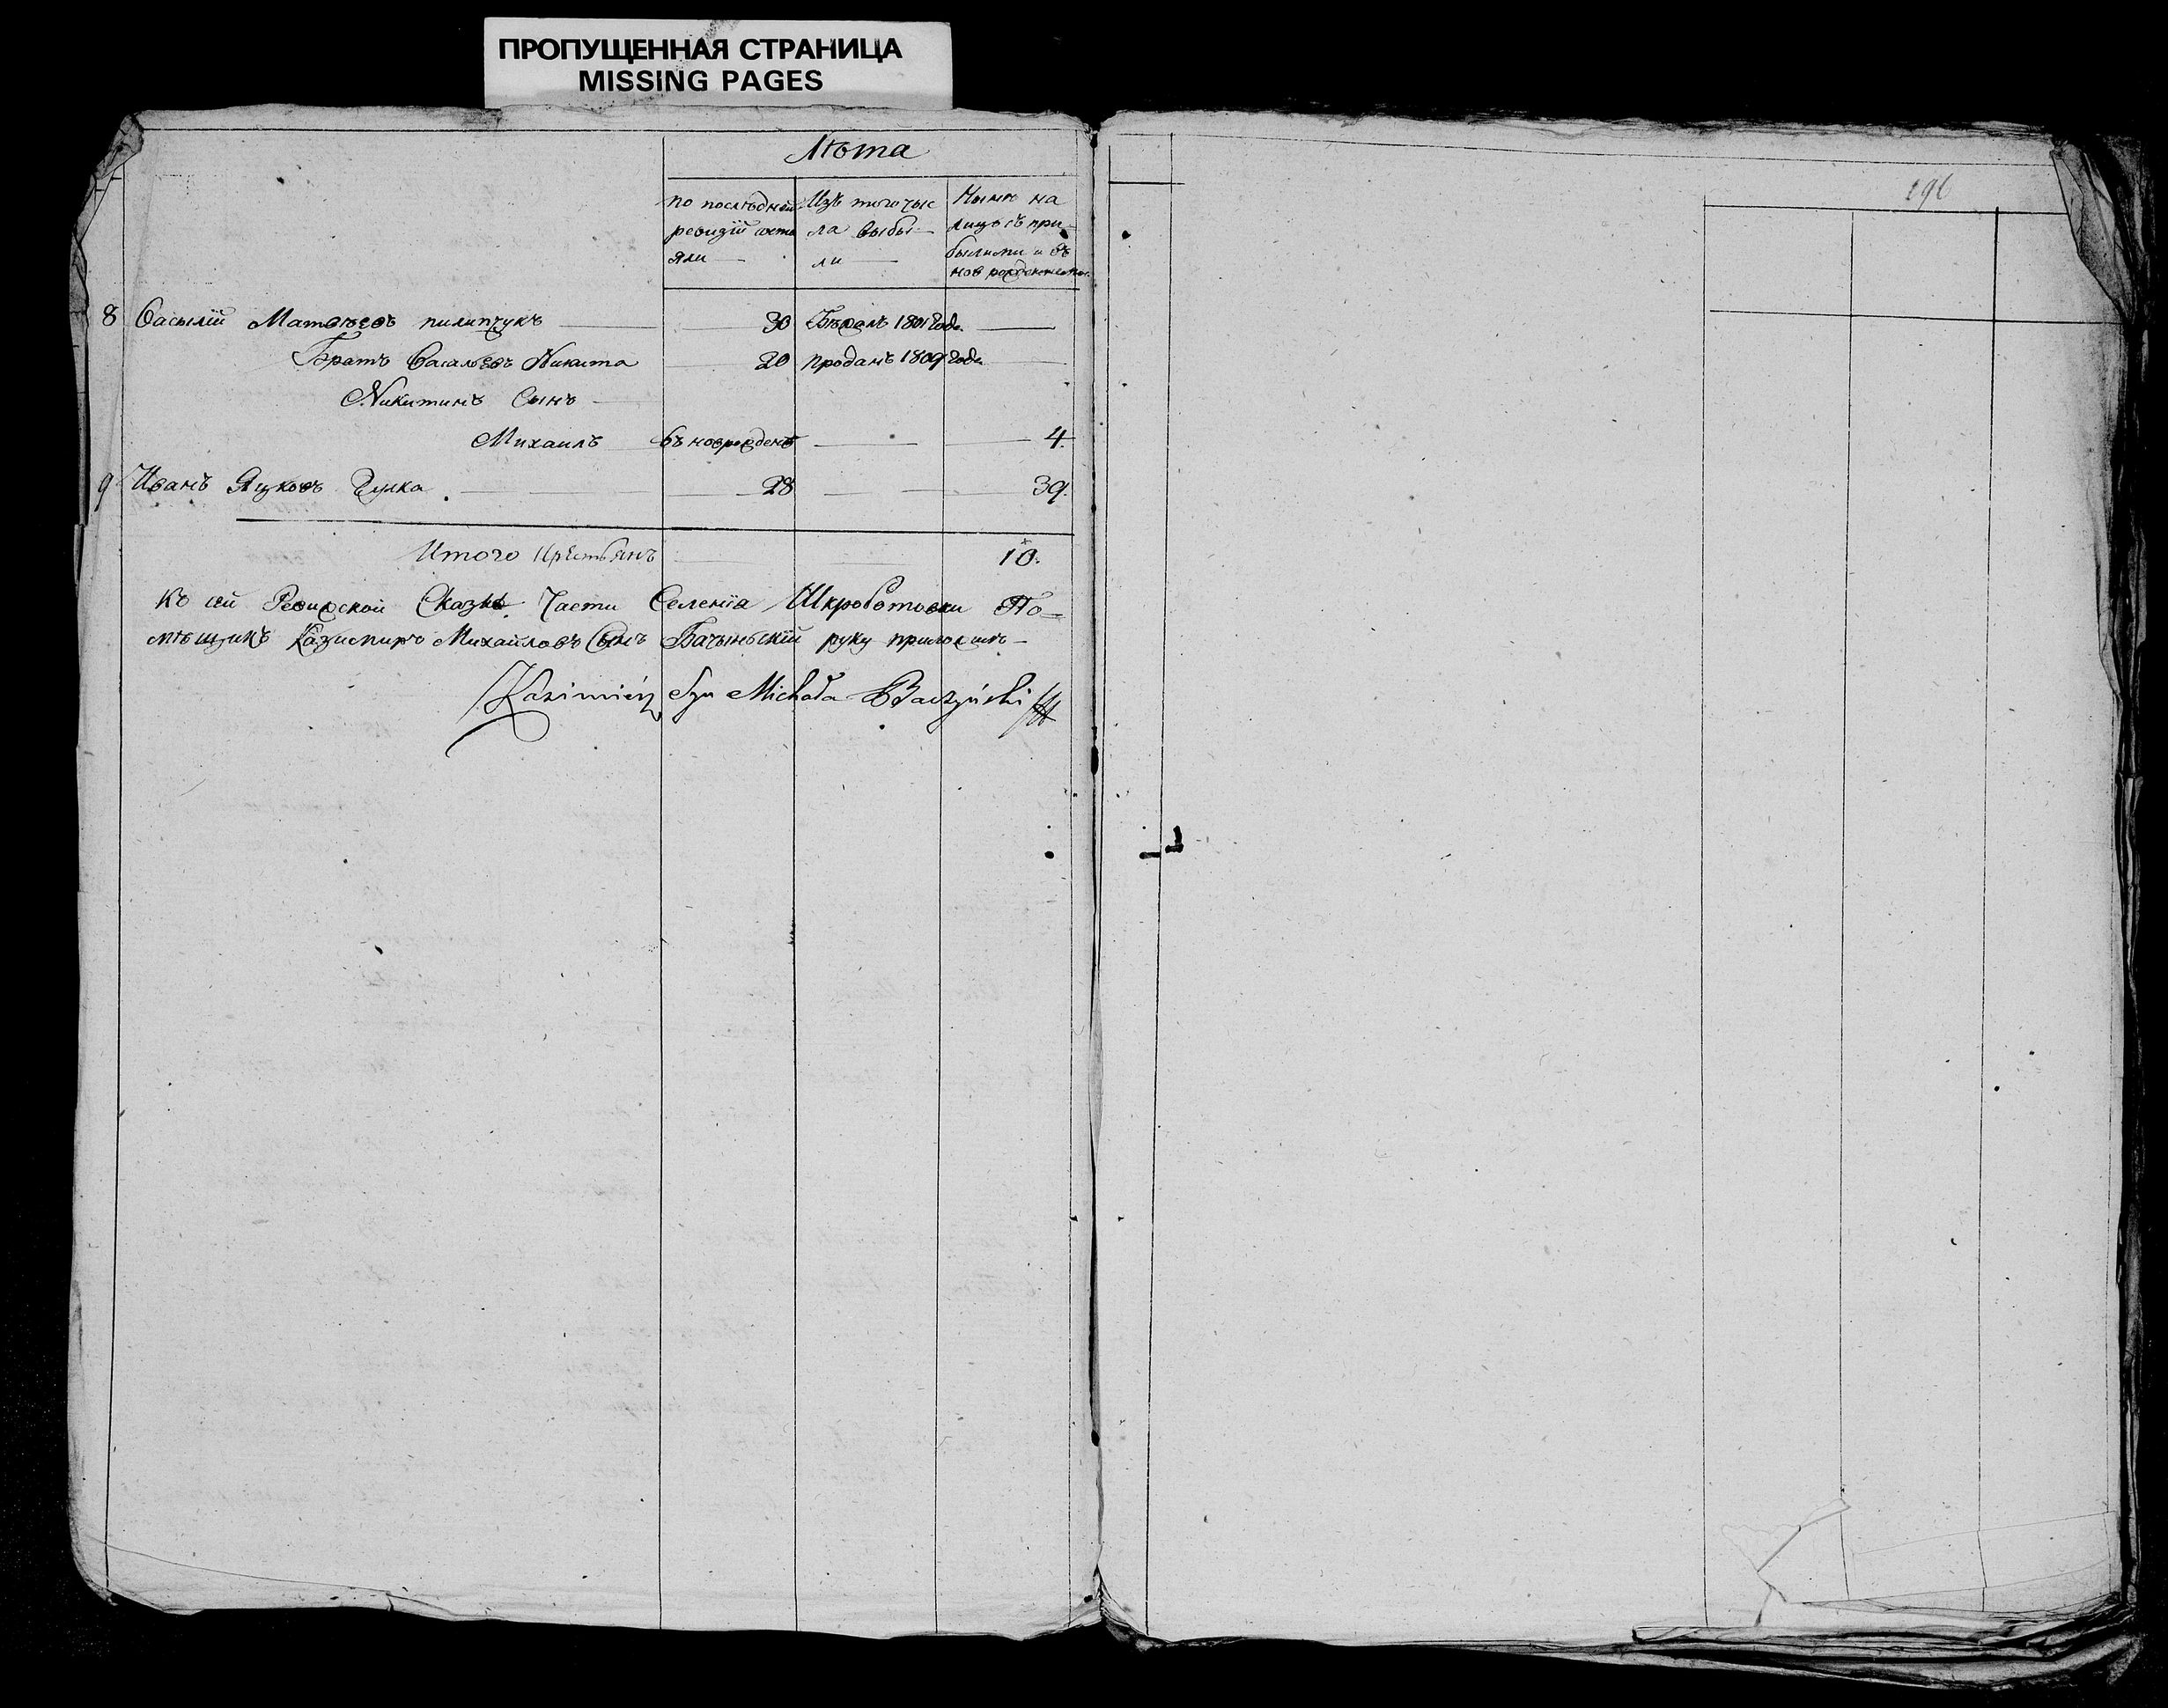 ПРОПУЩЕННАЯ СТРАНИЦА
MISSING PAGES
Лѣта
по послѣдней ревизіи состояли
Изъ того числа выбыли
Нынѣ на лицо съ прибылыми и въ новрожденными
8 Василій Матвѣевъ пилипчукъ 30 Бѣжалъ 1801 Года
Братъ Васильевъ Никита 20 проданъ 1809 Года
Никитинъ Сынъ
Михаилъ въ новрожденъ 4.
9 Иванъ Яцковъ Гулка 28 39.
Итого крестьянъ 10.
Къ сей Ревизской Сказкѣ Части Селенія Шкроботовки По-
мѣщикъ Казимиръ Михайловъ Сынъ Бачыньскій руку приложилъ
Kazimiérz Syn Michała Baczyński
196